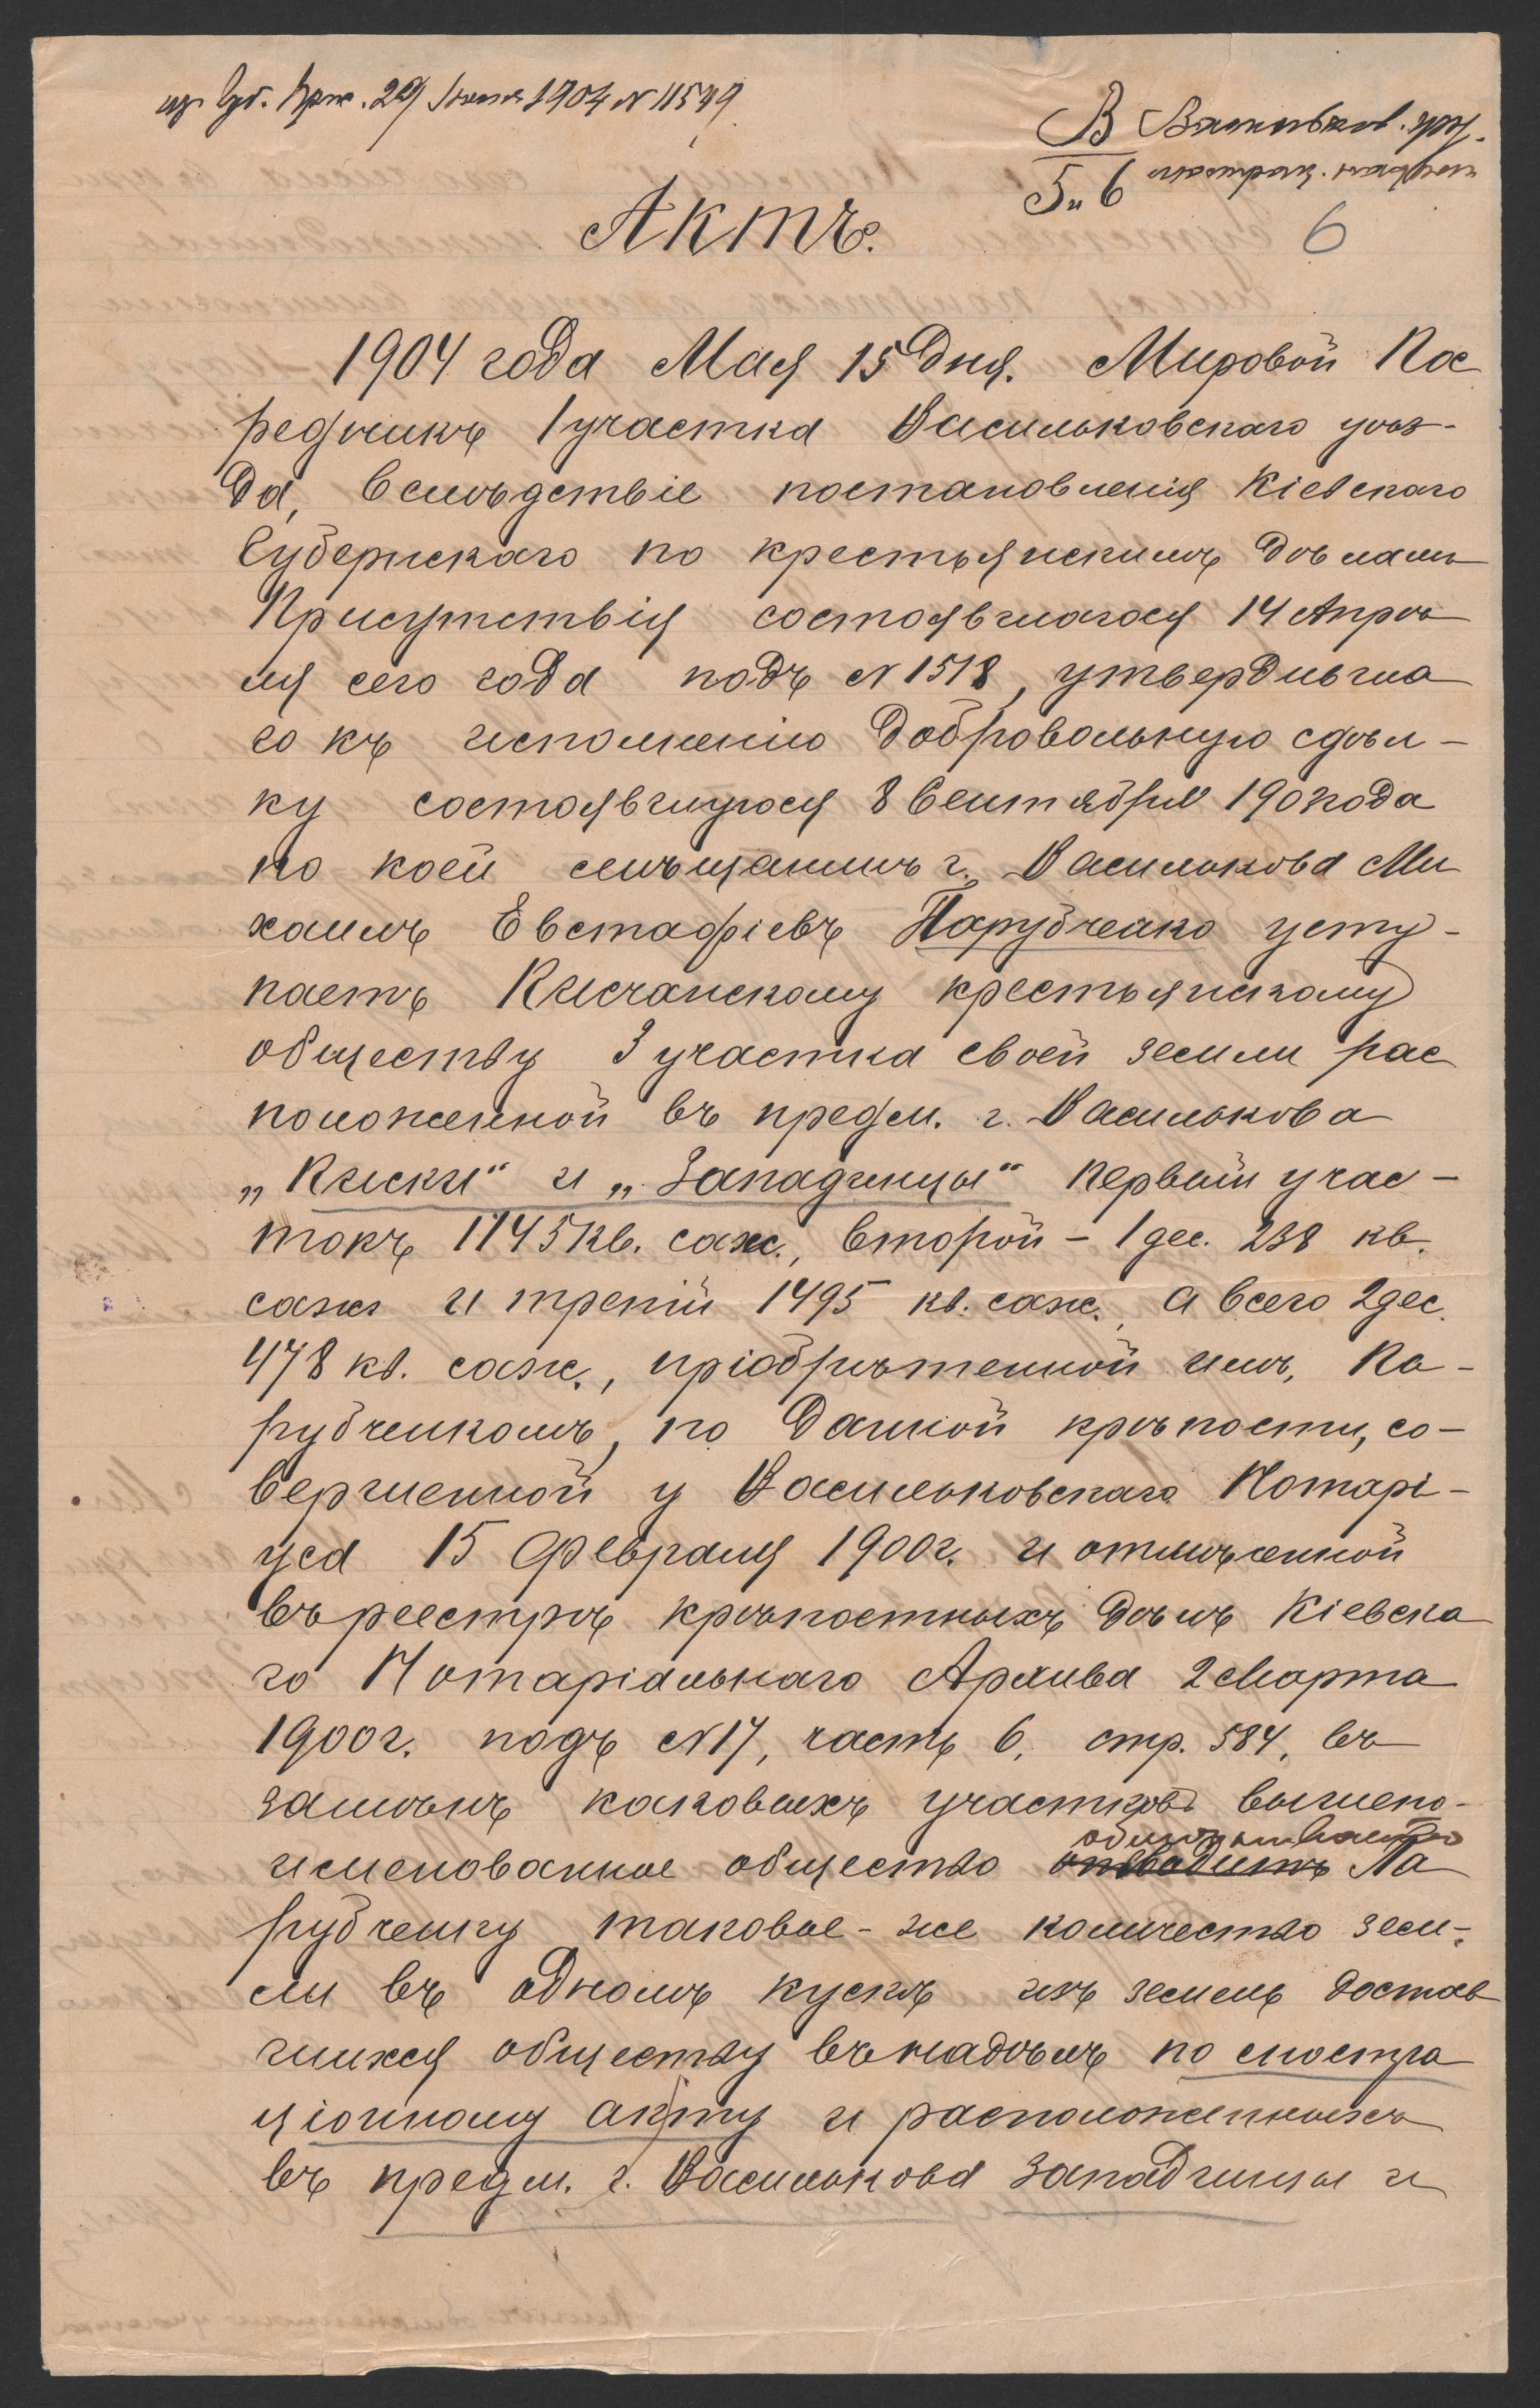 Губ. Прис. 29 Іюня 1904 № 11549
В Васильков. уѣз.
5 и 6
6
Актъ.
1904 года Мая 15 Дня. Мировой Пос
редникъ 1 участка Васильковскаго уѣз-
да, вслѣдствіе постановленія Кіевскаго
Губернскаго по крестьянскимъ дѣламъ
Присутствія состоявшагося 14 Апрѣ
ля сего года подъ № 1518, утвердивша
го къ исполненію добровольную сдѣл-
ку состоявшуюся 8 Сентября 1903 года
по коей мѣщанинъ г. Василькова Ми
хаилъ Евстафіевъ Парубченко усту-
паетъ Кисчанскому крестьянскому
обществу 3 участка своей земли рас
положенной въ предм. г. Василькова
„Киски" и „Западинцы" первый учас-
токъ 1145 кв. саж., второй - 1 дес. 238 кв.
саж и третій 1495 кв. саж., а всего 2 дес.
478 кв. саж., пріобрѣтенной имъ, Па-
рубченкомъ, по данной крѣпости, со-
вершенной у Васильковскаго Нотарі-
уса 15 Февраля 1900 г. и отмѣченной
въ реестрѣ крѣпостныхъ дѣлъ Кіевска
го Нотаріальнаго Архива 2 Марта
1900 г. подъ № 17, часть 6, стр. 584, въ
замѣнъ каковыхъ участковъ вышепо-
именованное общество отводитъ Па
рубченку таковое-же количество зем-
ли въ одномъ кускѣ изъ земель достав
шихся обществу въ надѣлъ по люстра
ціонному акту и расположенныхъ
въ предм. г. Василькова Западинцы и